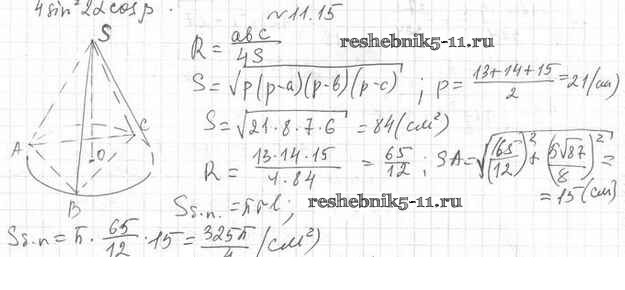 4sin²2αcosβ.
№11.15
S
A
B
C
O
R = abc / 4S
reshebnik5-11.ru
S = √p(p-a)(p-b)(p-c) ; p = (13+14+15) / 2 = 21(см)
S = √21·8·7·6 = 84(см²)
R = 13·14·15 / 4·84 = 65/12 ; SA = √(65/12)² + (5√87/8)² =
= 15(см)
Sб.п. = πrl;
reshebnik5-11.ru
Sб.п = π · 65/12 · 15 = 325π/4 (см²)